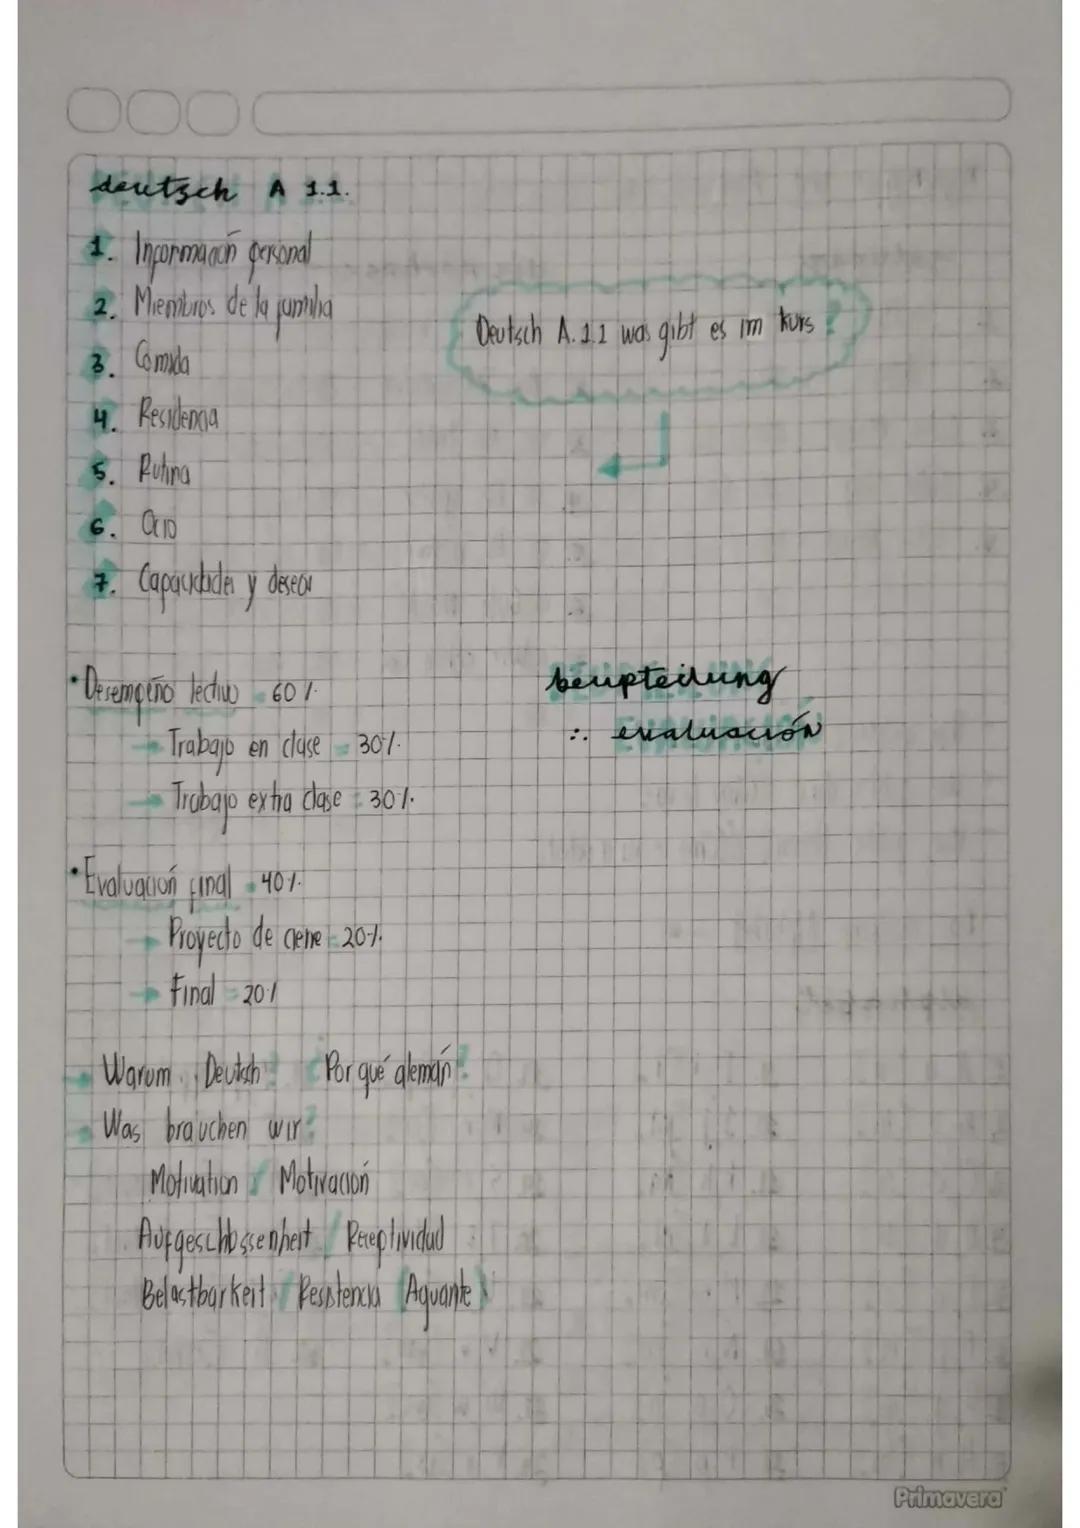 deutsch A 1.1.
1. Información personal
2. Miembros de la familia
3. Comida
4. Residencia
5. Rutina
6. Ocio
7. Capacidades y deseos
Deutsch A.1.1 was gibt es im kurs?
• Desempeño lectivo = 60%
→ Trabajo en clase = 30%.
→ Trabajo extra clase = 30%.
beupteilung
∴ evaluación
• Evaluación final = 40%.
→ Proyecto de cierre = 20%.
→ Final = 20%
→ Warum Deutsch? ¿Por qué alemán?
→ Was brauchen wir?
Motivation / Motivación
Aufgeschlossenheit / Receptividad
Belastbarkeit / Resistencia (Aguante)
Primavera